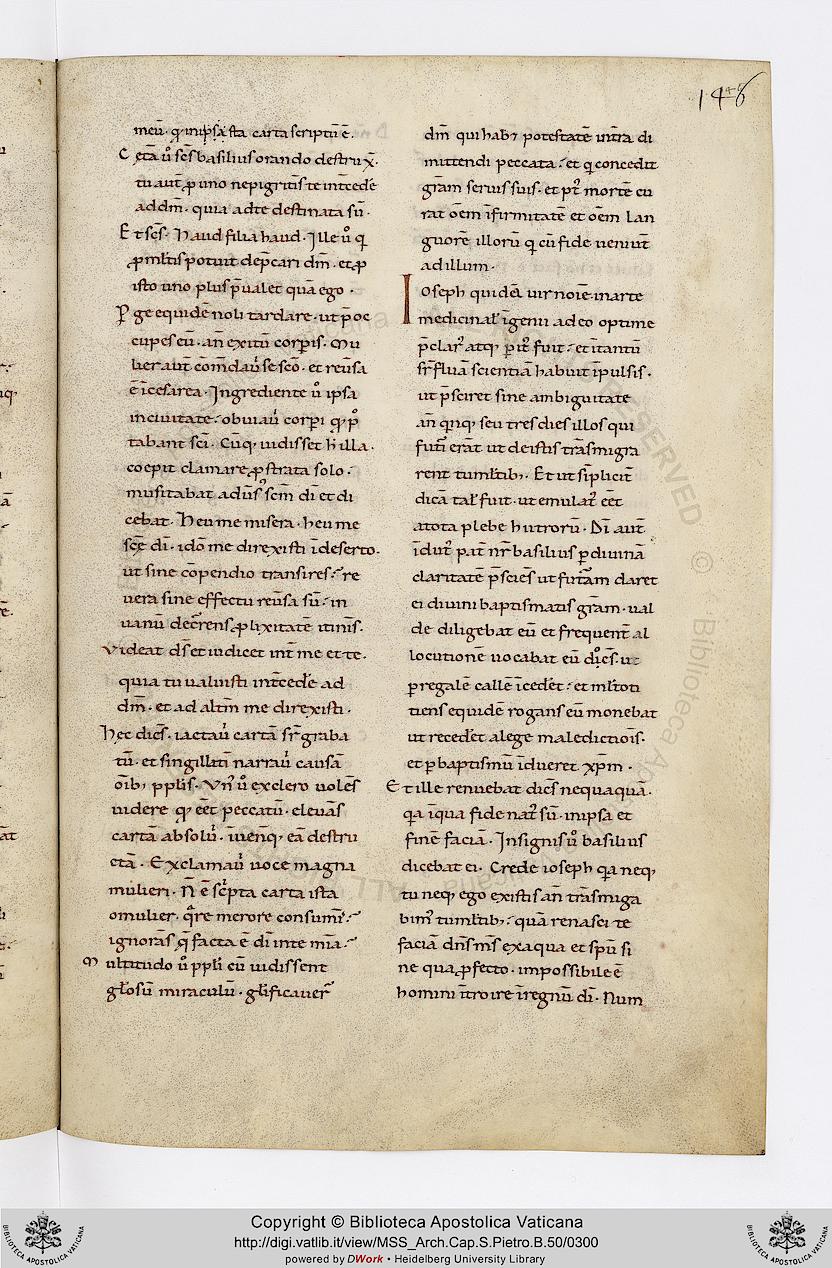 146
meū· q̄ inip̄sa ista carta scriptū ē.
Cetā ū scs̄ basilius orando destrux̄·
tu aut̄ ꝓ uno nepigritis te int̄cedē
addm̄· quia adte destinata sū·
Et scs̄· haud filia haud· Ille ū q̄
ꝓ ml̄tis potuit dep̄cari dm̄· et ꝓ
isto uno plus p̄ualet quā ego·
Pge equidē noli tardare· ut p̄oc
cupes eū· an̄ exitū corp̄is· Mu
lier aut̄ com̄dau̅ se sc̄o· et reūsa
ē īcesarea· Ingrediente ū ipsa
inciuitate· obuiau̅ corp̄i q̄ p̄
tabant sc̄i· Cūq; uidisset h̄ illa·
coepit clamare ꝓstrata solo·
musitabat adūs sc̄m dī et di
cebat· Heu me misera· heu me
sc̄e dī· ido̅ me direxisti īdeserto·
ut sine cōpendio transires· re
uera sine effectu reūsa sū· in
uanū dec̄rens ꝓlixitatē itin̄is·
Videat ds̄ et iudicet int̄ me et te·
quia tu ualuisti int̄cedēe ad
dm̄· et ad alt̄m me direxisti·
Hec dicēs· iactau̅ cartā sr̄ graba
tū· et singillīti narrau̅ causā
om̄ib; pp̄lis· Vn̄ ū exclero uolēs
uidere q̄ eēt peccatū· eleuās
cartā absolū· īuenq; eā destru
ctā· Exclamau̅ uoce magna
mulieri· N̄ ē sc̄pta carta ista
omulier· q̄re merore consumīs·
ignorās q̄ facta ē dī inte mīa·
Multitudo ū pp̄li cū uidissent
gl̄osū miraculū· gl̄ificauer̄
dm̄ qui hab; potestatē int̄ra di
mittendi peccata· et q̄ concedit
gr̄am seruis suis· et pt̄ mortē cu
rat oēm īfirmitatē et oēm lan
guorē illorū q̄ cū fide ueniūt
adillum·
Ioseph quidā uir noīe· inarte
medicinal̄ īgenii adeo optime
p̄clar̄ atq; p̄it̄ fuit· et ītantū
sr̄fluā scientiā habuit īpulsis·
ut p̄sciret sine ambiguitate
an̄ q̄nq; seu tres dies illos qui
futi erāt ut deistis trāsmigra
rent tumltib;· Et ut sīplicit̄
dicā tal̄ fuit· ut emulat̄ eēt
atota plebe hutrorū· Dī aut̄
īdut̄ pat̄ nr̄ basilius p̄ diuinā
claritatē p̄sciēs ut furt̄am daret
ei diuini baptismatis gr̄am· ual
de diligebat eū et frequent̄ al
locutionē uocabat eū dīcēs· ut
p̄ regalē callē īcedet̄· et ml̄toti
tiens equidē rogans eū monebat
ut recedet̄ alege maledictiois·
et p̄ baptismū īdueret xp̄m·
Et ille renuebat dicēs nequaquā·
q̄a īqua fide nat̄ sū· inipsa et
finē faciā· Insignis ū basilius
dicebat ei· Crede ioseph q̄a neq;
tu neq; ego existis an̄ trāsmiga
bim̄ tumltib;· quā renasci te
faciā dn̄s m̄s exaqua et sp̄u si
ne qua ꝓfecto· impossibile ē
homini ītroire īregnū dī· Num
Copyright © Biblioteca Apostolica Vaticana
http://digi.vatlib.it/view/MSS_Arch.Cap.S.Pietro.B.50/0300
powered by DWork • Heidelberg University Library